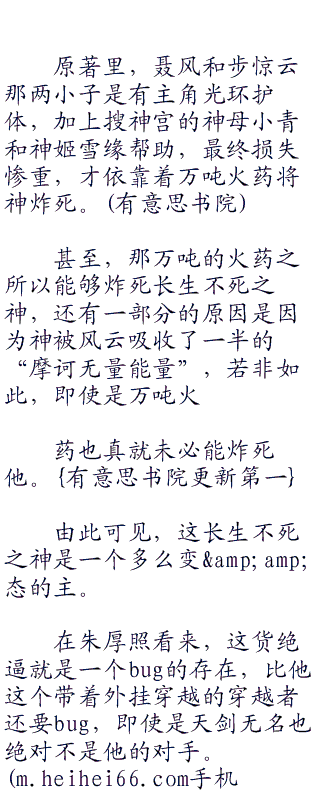 原著里，聂风和步惊云
那两小子是有主角光环护
体，加上搜神宫的神母小青
和神姬雪缘帮助，最终损失
惨重，才依靠着万吨火药将
神炸死。(有意思书院)
甚至，那万吨的火药之
所以能够炸死长生不死之
神，还有一部分的原因是因
为神被风云吸收了一半的
“摩诃无量能量”，若非如
此，即使是万吨火
药也真就未必能炸死
他。{有意思书院更新第一}
由此可见，这长生不死
之神是一个多么变&amp;amp;
态的主。
在朱厚照看来，这货绝
逼就是一个bug的存在，比他
这个带着外挂穿越的穿越者
还要bug，即使是天剑无名也
绝对不是他的对手。
(m.heihei66.com手机